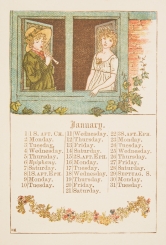 January.
1 1 S. AFT. CH.
2 Monday,
3 Tuesday,
4 Wednesday,
5 Thursday,
6 Epiphany.
7 Saturday,
8 1 S. AFT. EPH.
9 Monday,
10 Tuesday.
11 Wednesday,
12 Thursday,
13 Friday,
14 Saturday.
15 2 S. AFT. EPH.
16 Monday,
17 Tuesday,
18 Wednesday,
19 Thursday,
20 Friday,
21 Saturday.
22 3 S. AFT. EPH.
23 Monday,
24 Tuesday,
25 Wednesday,
26 Thursday,
27 Friday,
28 Saturday,
29 SEPTUAG. S.
30 Monday,
31 Tuesday.